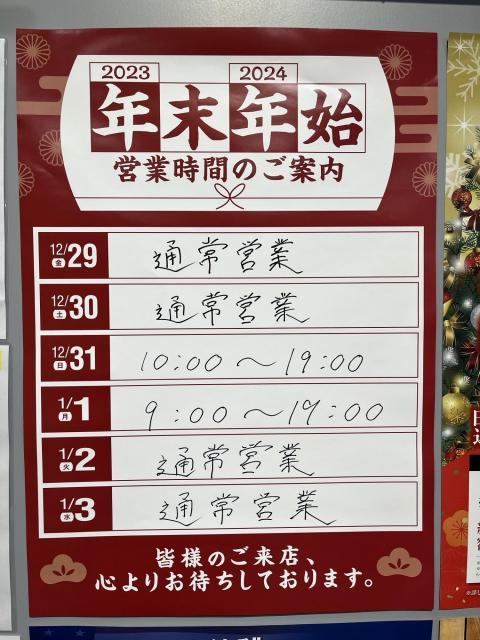 2023 2024
年末年始
営業時間のご案内
12/29 金 通常営業
12/30 土 通常営業
12/31 日 10:00～19:00
1/1 月 9:00～19:00
1/2 火 通常営業
1/3 水 通常営業
皆様のご来店、
心よりお待ちしております。